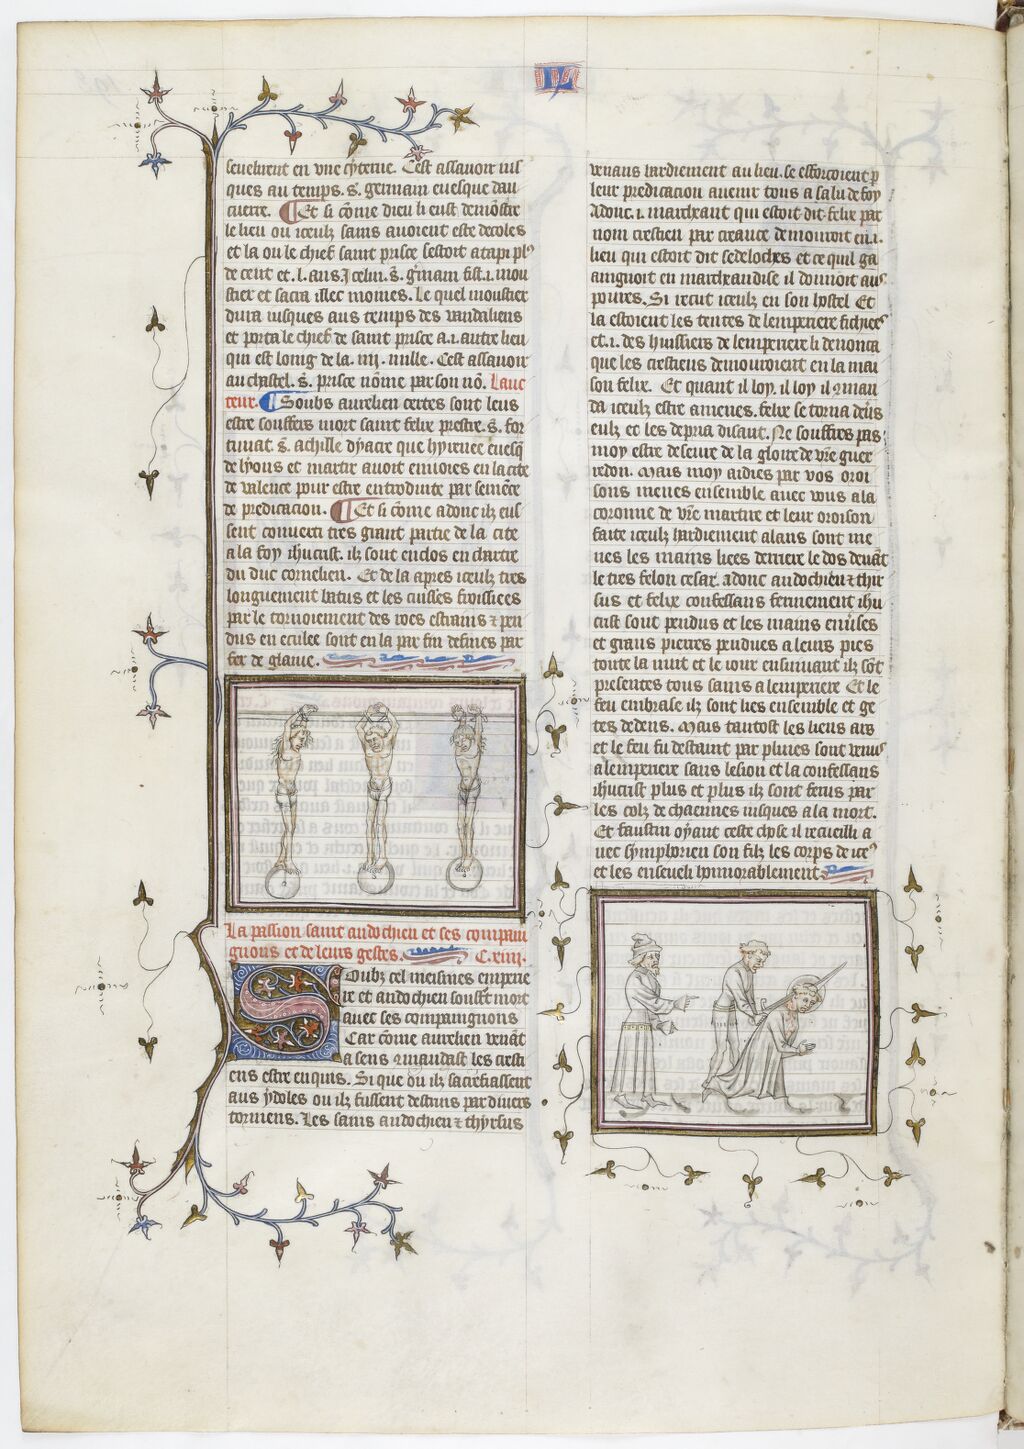 L
sevelirent en une cysterne. Cest assavoir jus
ques au temps. s. germain evesque dau
cuerre. Et si cōme dieu li eust demōstre
le lieu ou iceulz sains avoient este decoles
et la ou le chief saint prisce sestoit atapi plꝰ
de cent et .l. ans. Icelui .s. gʼmain fist .i. mou
stier et sacra illec moines. Le quel moustier
dura jusques aus temps des vandaliens
et porta le chief de saint prisce a .i. autre lieu
qui est loing de la .iiii. mille. Cest assavoir
au chastel .s. prisce nōme par son nō. Lauc
teur. Soubs aurelien certes sont leus
estre souffers mort saint felix prestre .s. for
tunat .s. achille dyacre que hyrenee evesq̄
de lyons et martir avoit envoies en la cite
de valence pour estre introduite par semēce
de predicacion. Et si cōme adonc ilz eus
sent converti tres grant partie de la cite
a la foy ihucrist. ilz sont enclos en chartre
du duc cornelien. Et de la apres iceulz tres
longuement batus et les cuisses froissiees
par le tornoiement des roes estrains ⁊ pen
dus en eculee sont en la par fin defines par
fer de glaive.
La passion saint andochien et ses compain
gnons et de leurs gestes. C. xiiii.
Soubz cel meismes empere
re et andochien souffr̄t mort
avec ses compaingnons
Car cōme aurelien venāt
a sens ⁊ mandast les cresti
ens estre enquis. Si que ou ilz sacrefiassent
aus ydoles ou ilz fussent destruis par divers
tormens. Les sains andochien ⁊ thyrsus
venans hardiement au lieu. se efforcoient p̱
leur predicacion avenir tous a salu de foy
Adonc .i. marchant qui estoit dit felix par
nom crestien par creance demouroit en .i.
lieu qui estoit dit sedeloches et ce quil ga
aingnoit en marchandise il donnoit aus
povres. Si recut iceulz en son hostel Et
la estoient les tentes de lempeʼriere fichiees
et .i. des huissiers de lemperiere li denonca
que les crestiens demouroient en la mai
son felix. Et quant il loy, il loy il ⁊ man
da iceulz estre amenes. felix se torna deūs
eulz et les depria disant. Ne souffres pas
moy estre desevre de la gloire de vr̄e guer
redon. Mais moy aidies par vos oroi
sons menes ensemble avec vous a la
coronne de vr̄e martire et leur oroison
faite iceulz hardiement alans sont me
nes les mains liees derriere le dos devāt
le tres felon cesar. adonc andochien ⁊ thir
sus et felix confessans fermement ihu
crist sont pendus et les mains enūses
et grans pierres pendues a leurs pies
toute la nuit et le jour ensuivant ilz sōt
presentes tous sains a lemperiere Et le
feu embrase ilz sont lies ensemble et ge
tes dedens. Mais tantost les liens ars
et le feu fu destaint par pluies sont venus
a lemperiere sans lesion et la confessans
ihucrist plus et plus ilz sont ferus par
les colz de chaennes jusques a la mort.
Et faustin oyant ceste chose il recueilli a
vec symphorien son filz les corps de iceꝰ
et les enseveli honnorablement